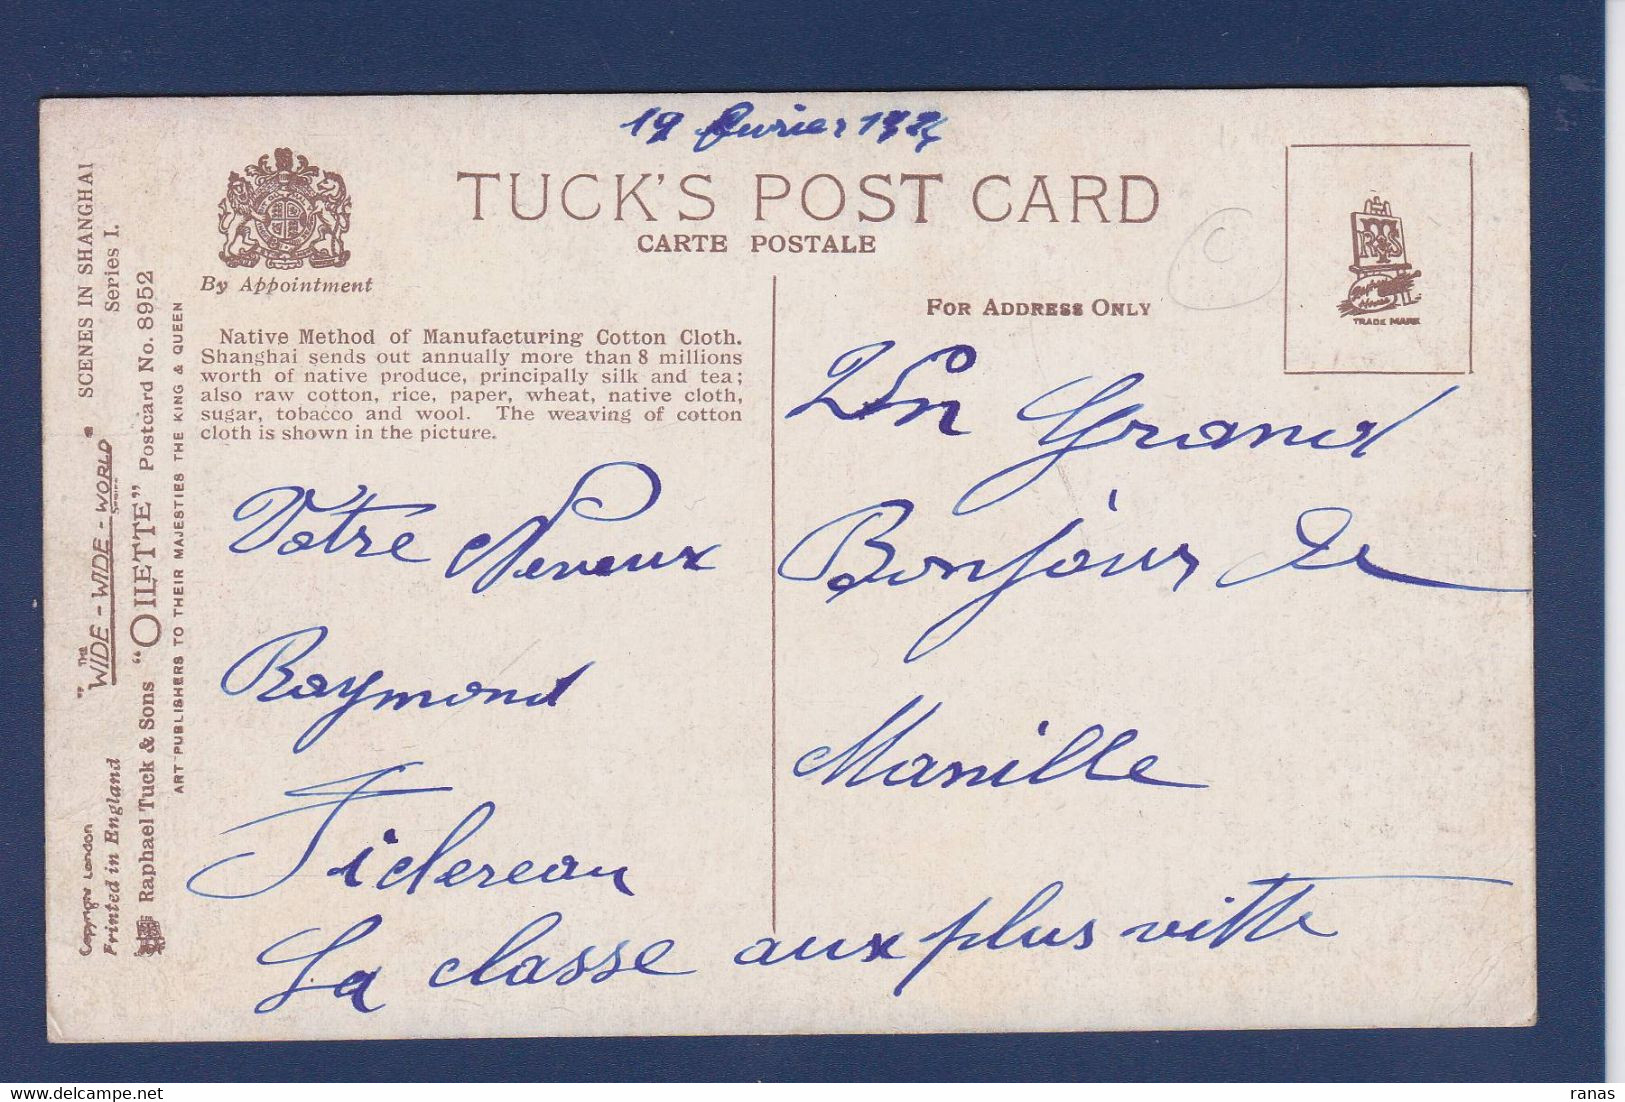 19 février
TUCK'S POST CARD
CARTE POSTALE
By Appointment
FOR ADDRESS ONLY
TRADE MARK
Native Method of Manufacturing Cotton Cloth.
Shanghai sends out annually more than 8 millions
worth of native produce, principally silk and tea;
also raw cotton, rice, paper, wheat, native cloth,
sugar, tobacco and wool. The weaving of cotton
cloth is shown in the picture.
Votre Neveux
Raymond
La classe aux plus vitte
Un Grand
Bonjour de
Manille
"THE WIDE-WIDE-WORLD" SERIES SCENES IN SHANGHAI
Series I.
Copyright London
Printed in England
Raphael Tuck & Sons "OILETTE" Postcard No. 8952
ART PUBLISHERS TO THEIR MAJESTIES THE KING & QUEEN
C
ranas